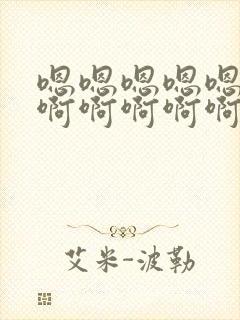 嗯嗯嗯嗯嗯
啊啊啊啊啊
艾米-波勒